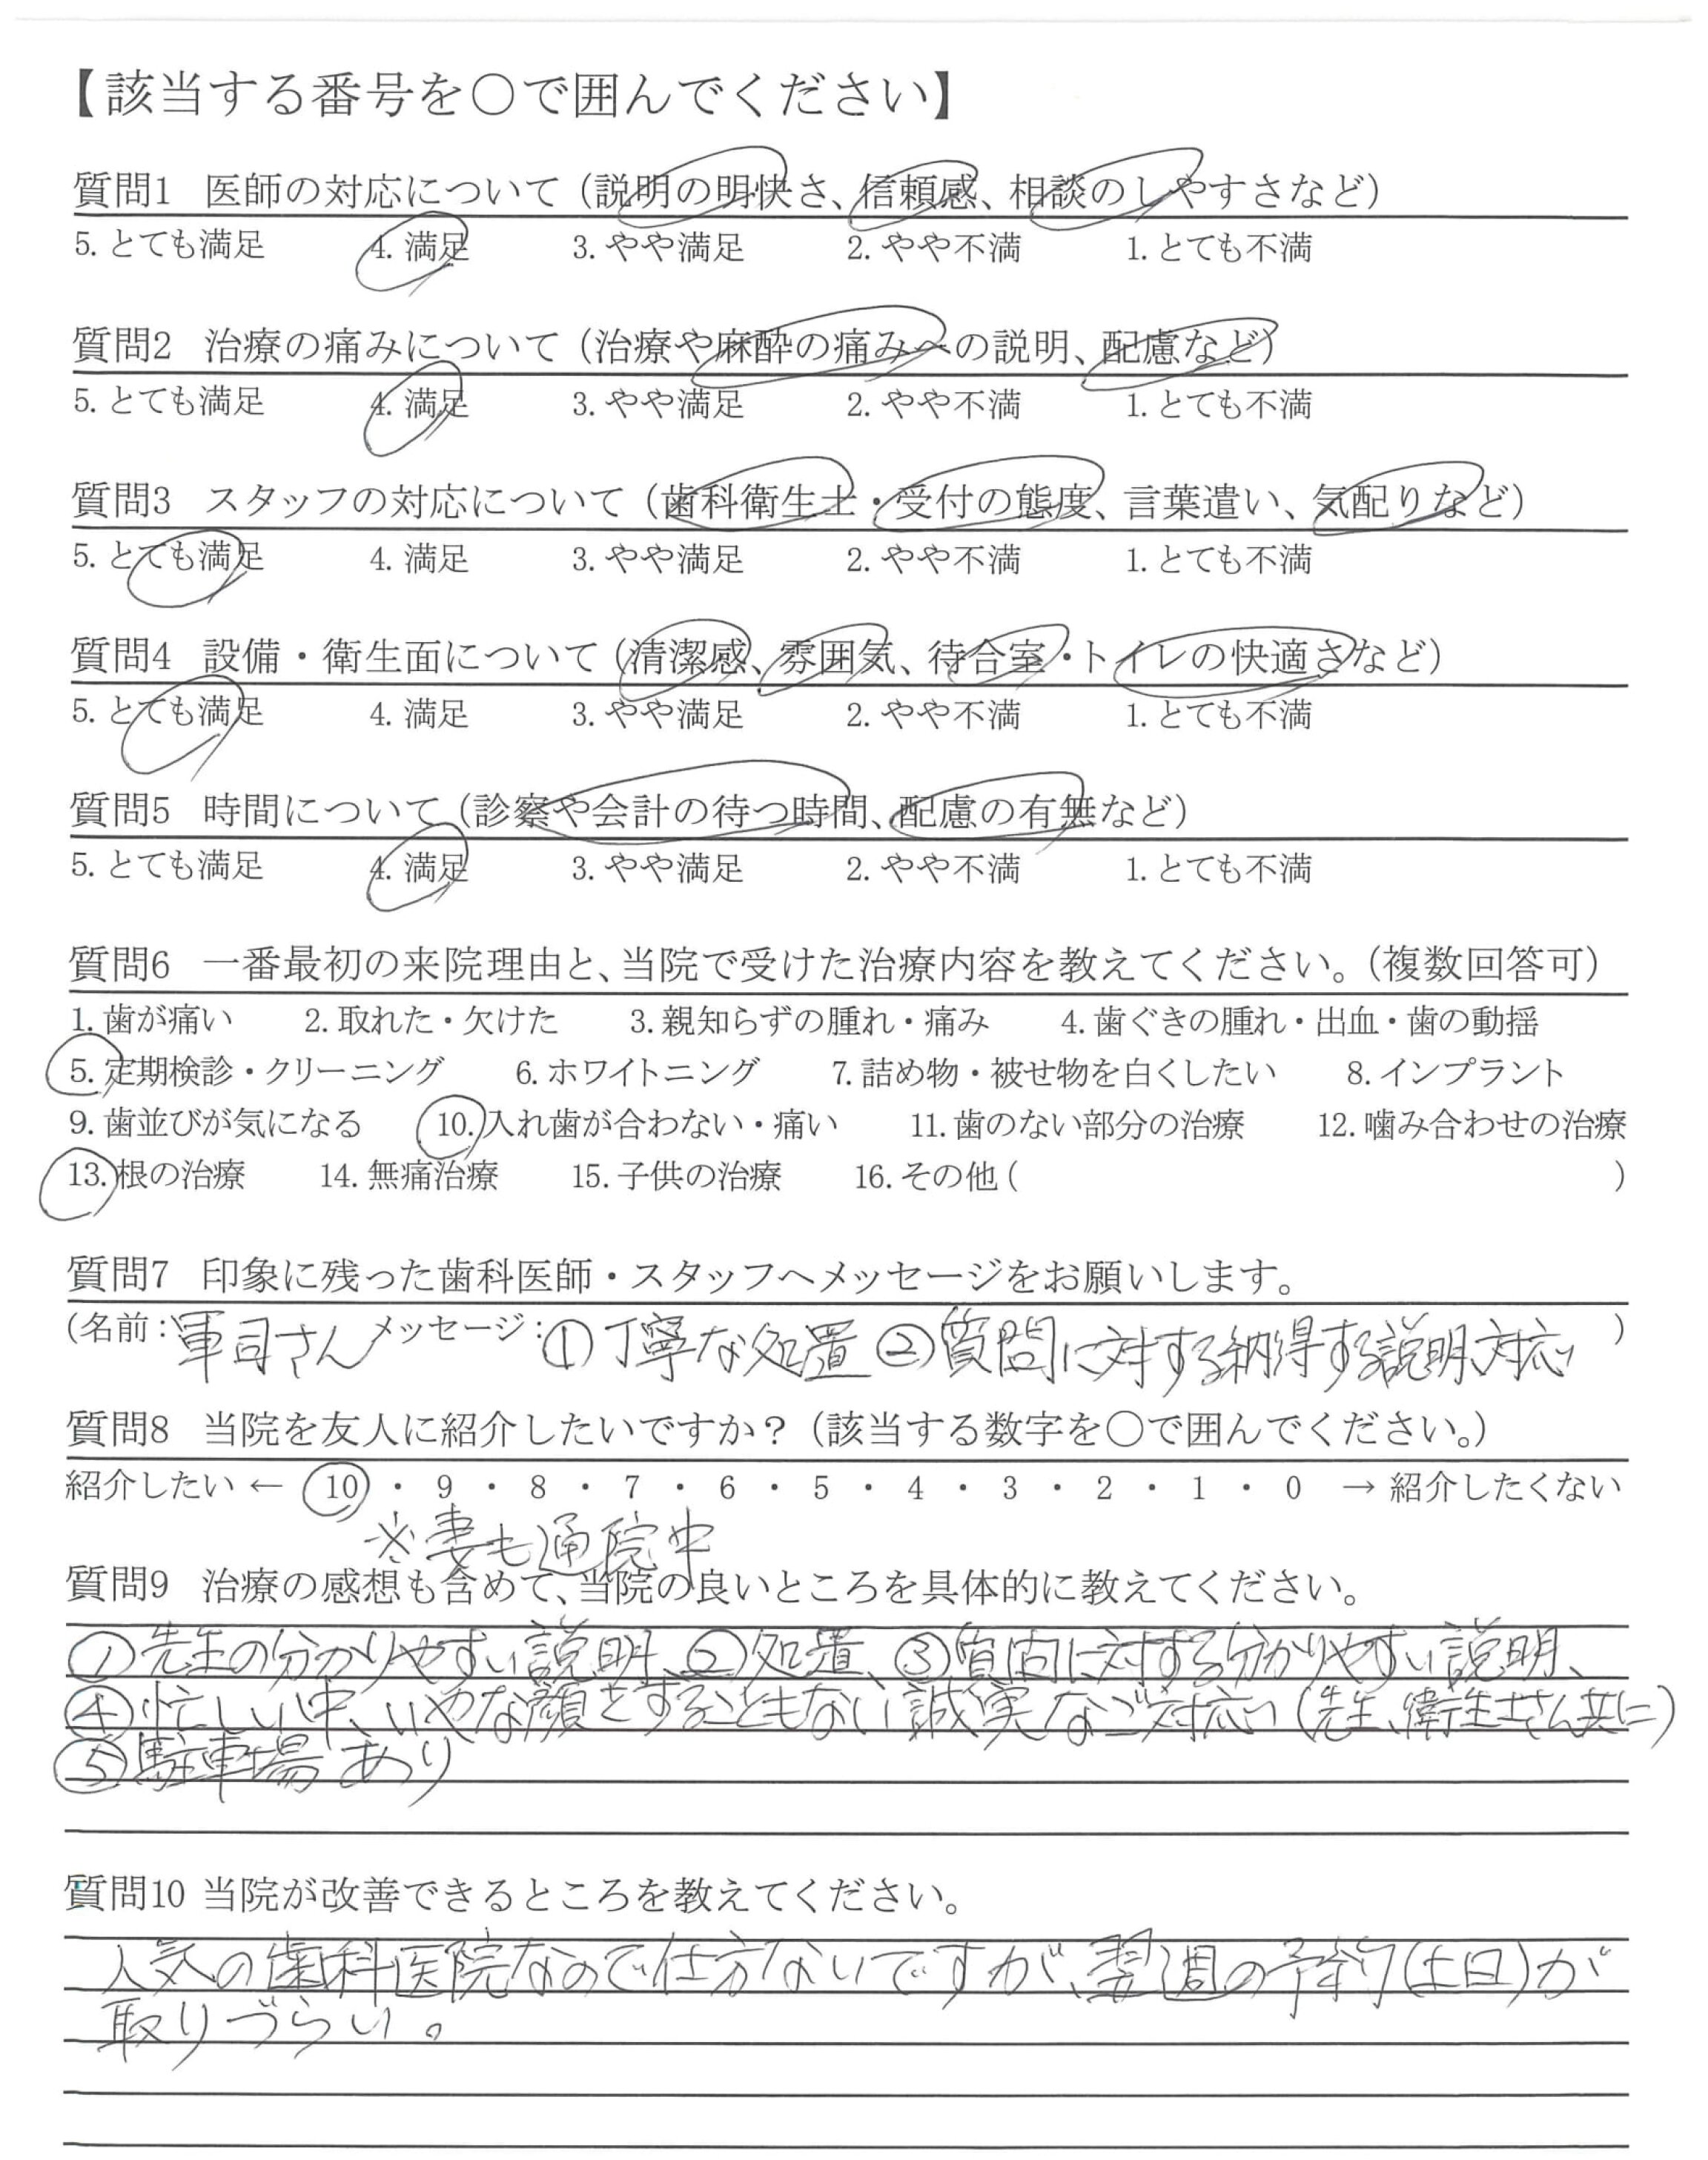 【該当する番号を○で囲んでください】
質問1 医師の対応について（説明の明快さ、信頼感、相談のしやすさなど）
5. とても満足 4. 満足 3. やや満足 2. やや不満 1. とても不満
質問2 治療の痛みについて（治療や麻酔の痛みへの説明、配慮など）
5. とても満足 4. 満足 3. やや満足 2. やや不満 1. とても不満
質問3 スタッフの対応について（歯科衛生士・受付の態度、言葉遣い、気配りなど）
5. とても満足 4. 満足 3. やや満足 2. やや不満 1. とても不満
質問4 設備・衛生面について（清潔感、雰囲気、待合室・トイレの快適さなど）
5. とても満足 4. 満足 3. やや満足 2. やや不満 1. とても不満
質問5 時間について（診察や会計の待つ時間、配慮の有無など）
5. とても満足 4. 満足 3. やや満足 2. やや不満 1. とても不満
質問6 一番最初の来院理由と、当院で受けた治療内容を教えてください。（複数回答可）
1. 歯が痛い 2. 取れた・欠けた 3. 親知らずの腫れ・痛み 4. 歯ぐきの腫れ・出血・歯の動揺
5. 定期検診・クリーニング 6. ホワイトニング 7. 詰め物・被せ物を白くしたい 8. インプラント
9. 歯並びが気になる 10. 入れ歯が合わない・痛い 11. 歯のない部分の治療 12. 噛み合わせの治療
13. 根の治療 14. 無痛治療 15. 子供の治療 16. その他（ ）
質問7 印象に残った歯科医師・スタッフへメッセージをお願いします。
（名前：軍司さん メッセージ：①丁寧な処置 ②質問に対する納得する説明、対応 ）
質問8 当院を友人に紹介したいですか？（該当する数字を○で囲んでください。）
紹介したい ← 10 ・ 9 ・ 8 ・ 7 ・ 6 ・ 5 ・ 4 ・ 3 ・ 2 ・ 1 ・ 0 → 紹介したくない
※妻も通院中
質問9 治療の感想も含めて、当院の良いところを具体的に教えてください。
①先生の分かりやすい説明、②処置、③質問に対する分かりやすい説明、
④忙しい中、いやな顔をすることもない誠実なご対応（先生、衛生士さん共に）
⑤駐車場あり
質問10 当院が改善できるところを教えてください。
人気の歯科医院なので仕方ないですが、翌週の予約（土日）が
取りづらい。